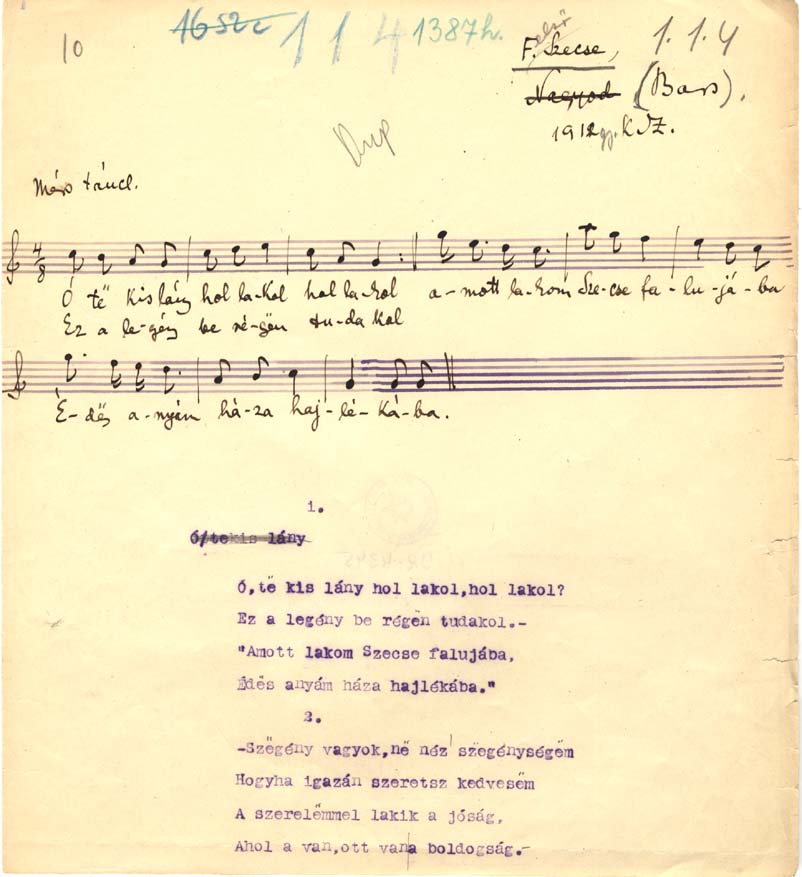 10 16 52 c 1 1 4 1387h. 1.1.4
első
F. Szecse,
Nagyod (Bars).
1912 gy. K.Z.
Dup
4/8
Ó të kis lány hol la-kol hol la-kol a-mott la-kom Sze-cse fa-lu-já-ba
Ez a le-gény be ré-gën tu-da kol
É-dës a-nyám há-za haj-lé-ká-ba.
1.
Ó/tekis lány
Ó,të kis lány hol lakol,hol lakol?
Ez a legény be régën tudakol.-
"Amott lakom Szecse falujába,
Édës anyám háza hajlékába."
2.
-Szëgény vagyok,në néz' szëgénységëm
Hogyha igazán szeretsz kedvesëm
A szerelëmmel lakik a jóság,
Ahol a van,ott van a boldogság.-